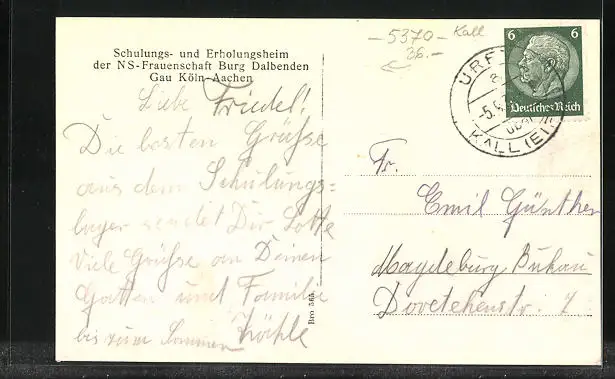 Schulungs- und Erholungsheim
der NS-Frauenschaft Burg Dalbenden
Gau Köln-Aachen
Liebe Friedel!
Die besten Grüße
aus dem Schulungs=
lager sendet Dir Lotte
Viele Grüße an Deinen
Gatten und Familie
bis zum
Bro 565
-5370- Kall
26.-
URFT
-5.
KALL (EIFEL)
6 6
Deutsches Reich
Fr.
Emil Günther
Magdeburg, Bukau
7